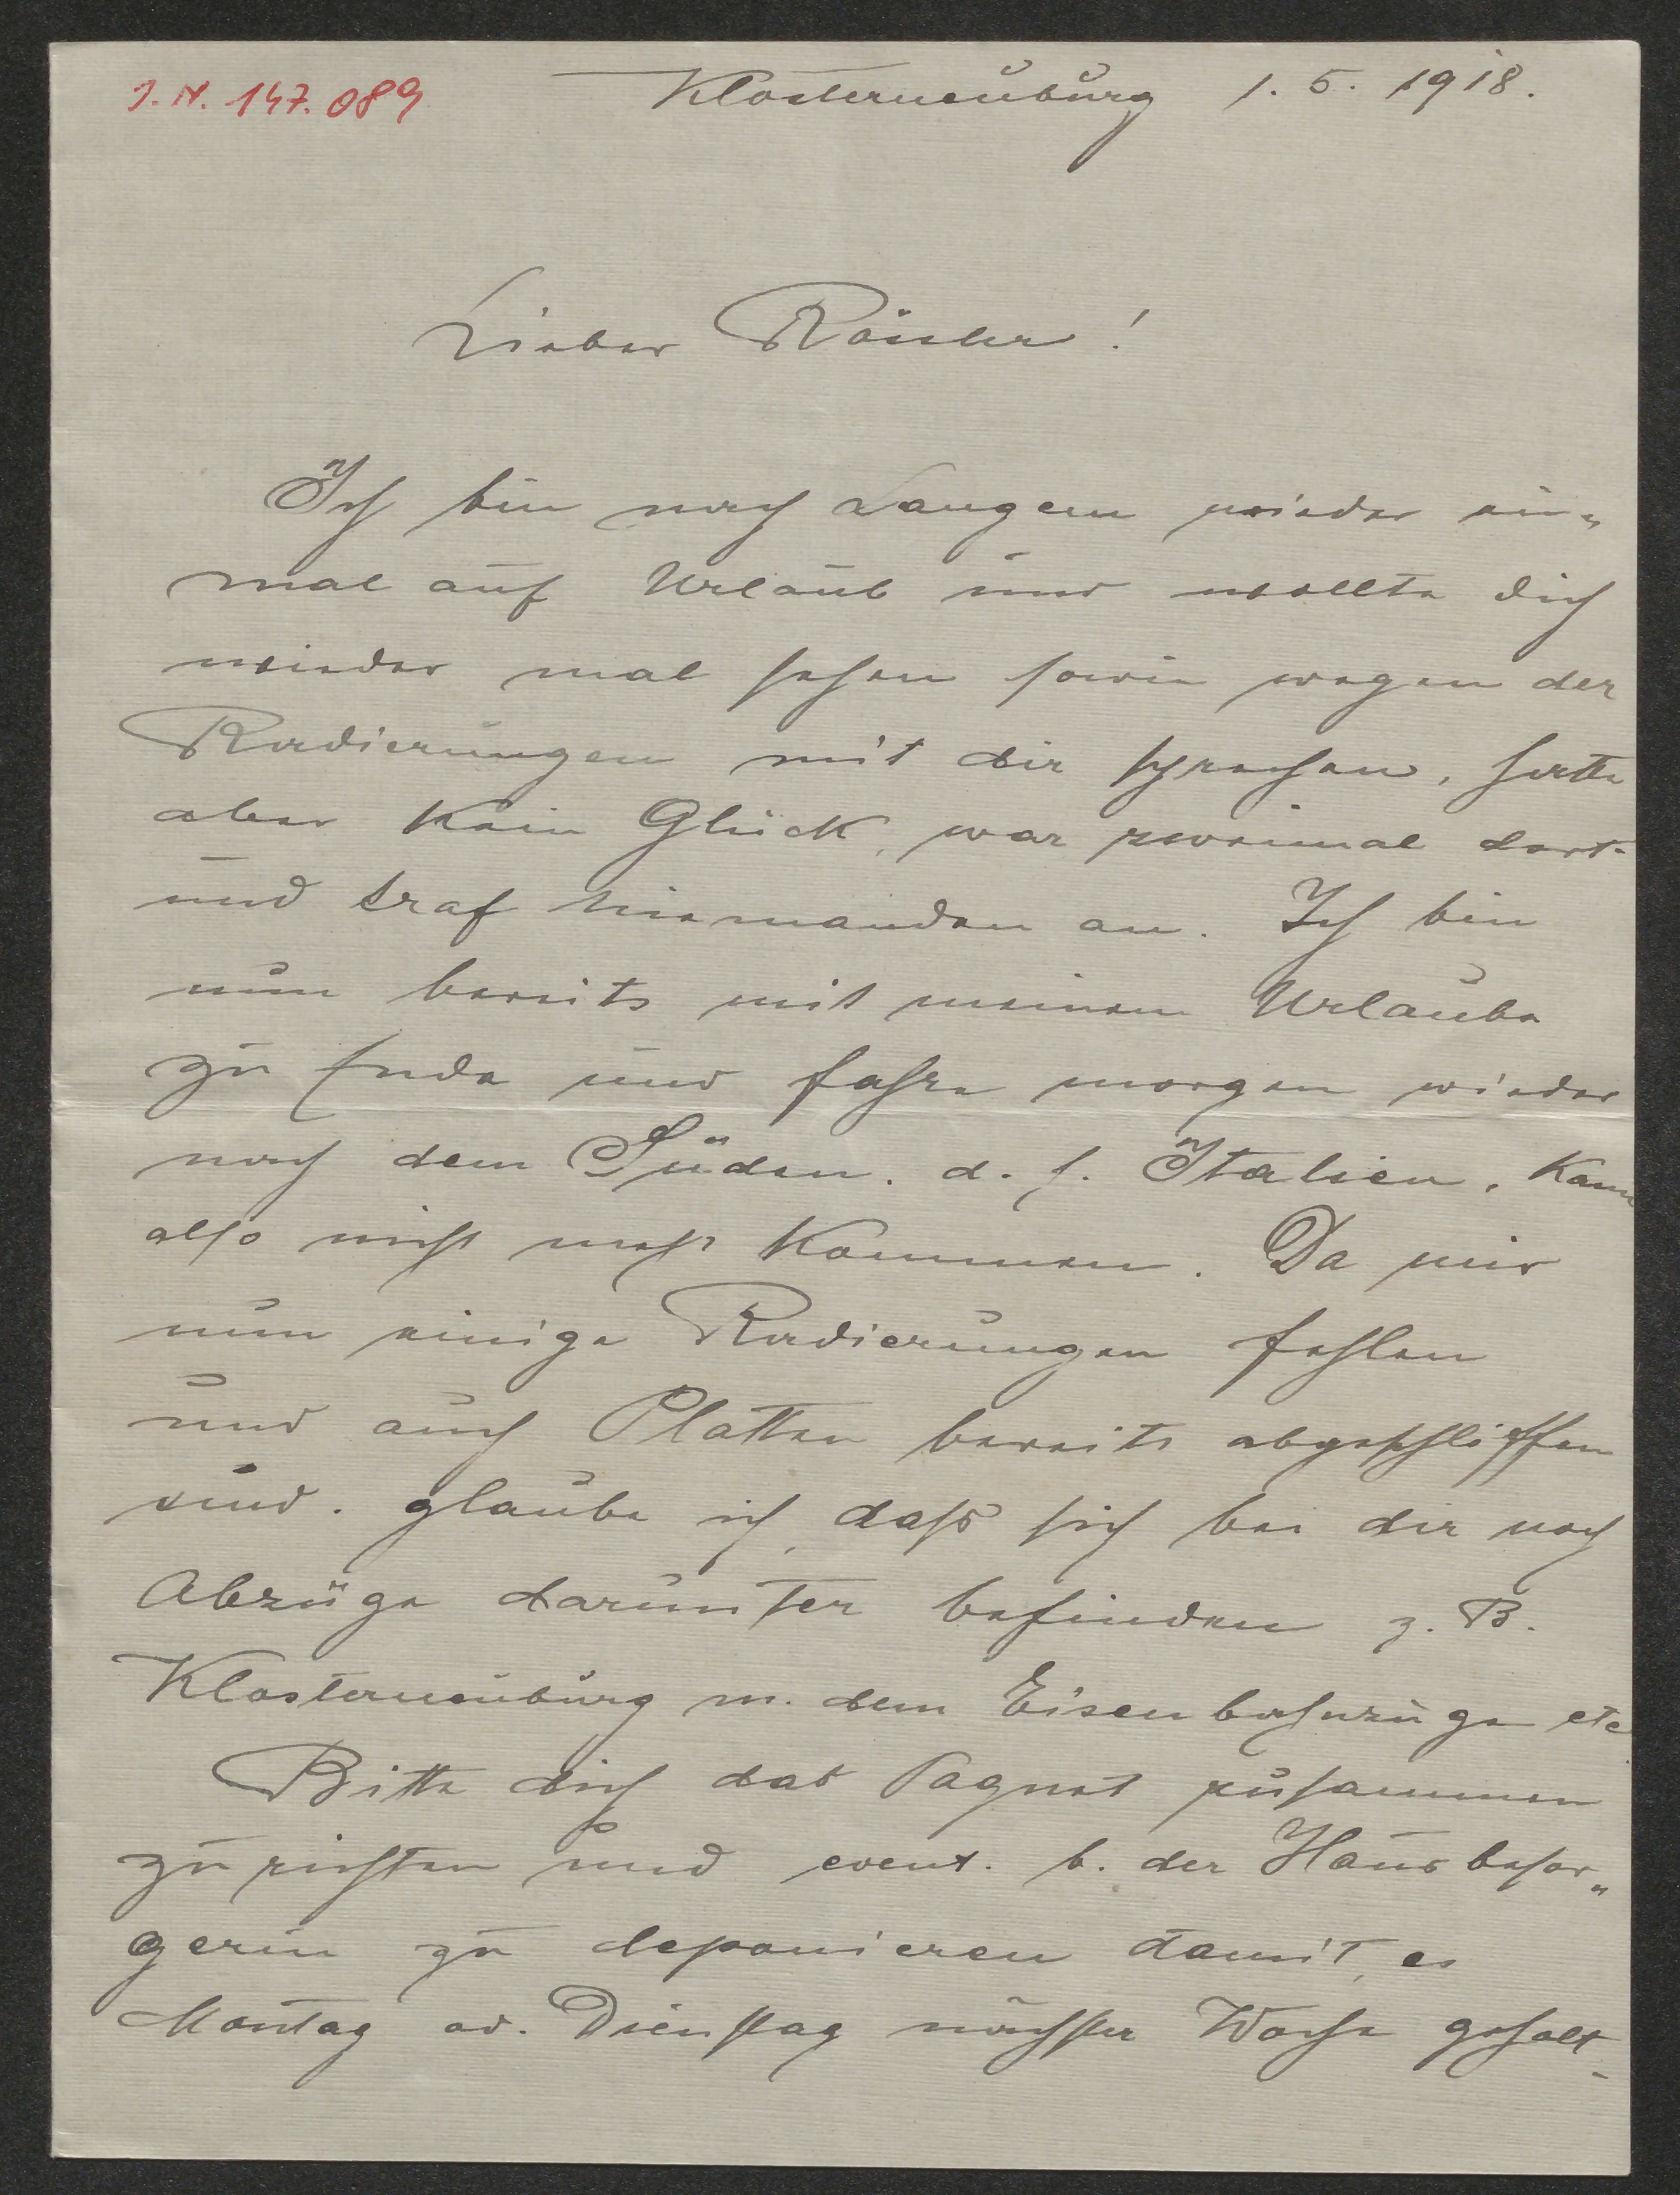 I. N. 147.089
Klosterneuburg 1. 5. 1918.
Lieber Rössler!
Ich bin nach Langem wieder ein„
mal auf Urlaub und wollte dich
wieder mal sehen sowie wegen der
Radierungen mit dir sprechen, hatte
aber kein Glück, war zweimal dort
und traf niemanden an. Ich bin
nun bereits mit meinem Urlaube
zu Ende und fahre morgen wieder
nach dem Süden. d. h. Italien, kann
also nicht mehr kommen. Da mir
nun einige Radierungen fehlen
und auch Platten bereits abgeschliffen
sind. glaube ich, dass sich bei dir noch
Abzüge darunter befinden z. B.
Klosterneuburg m. dem Eisenbahnzuge etc
Bitte dich das Paquet zusammen
zu richten und event. b. der Hausbesor„
gerin zu deponieren damit, es
Montag od. Dienstag nächster Woche geholt